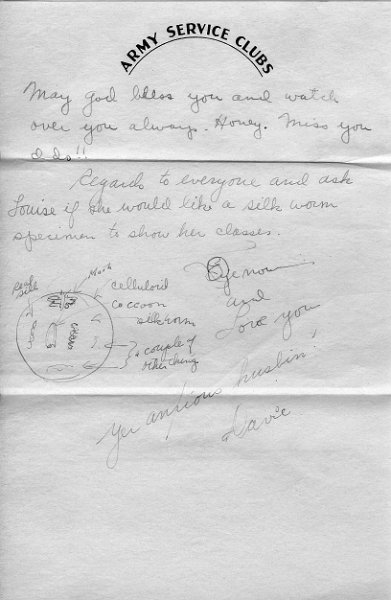 ARMY SERVICE CLUBS
May god bless you and watch
over you always. Honey. Miss you
I do!!
Regards to everyone and ask
Louise if she would like a silk worm
specimen to show her classes.
Bye now
and
Love you
Moth
celluloid
coccoon
silkworm
a couple of
other thing
Yer anxious husbin!
Davie